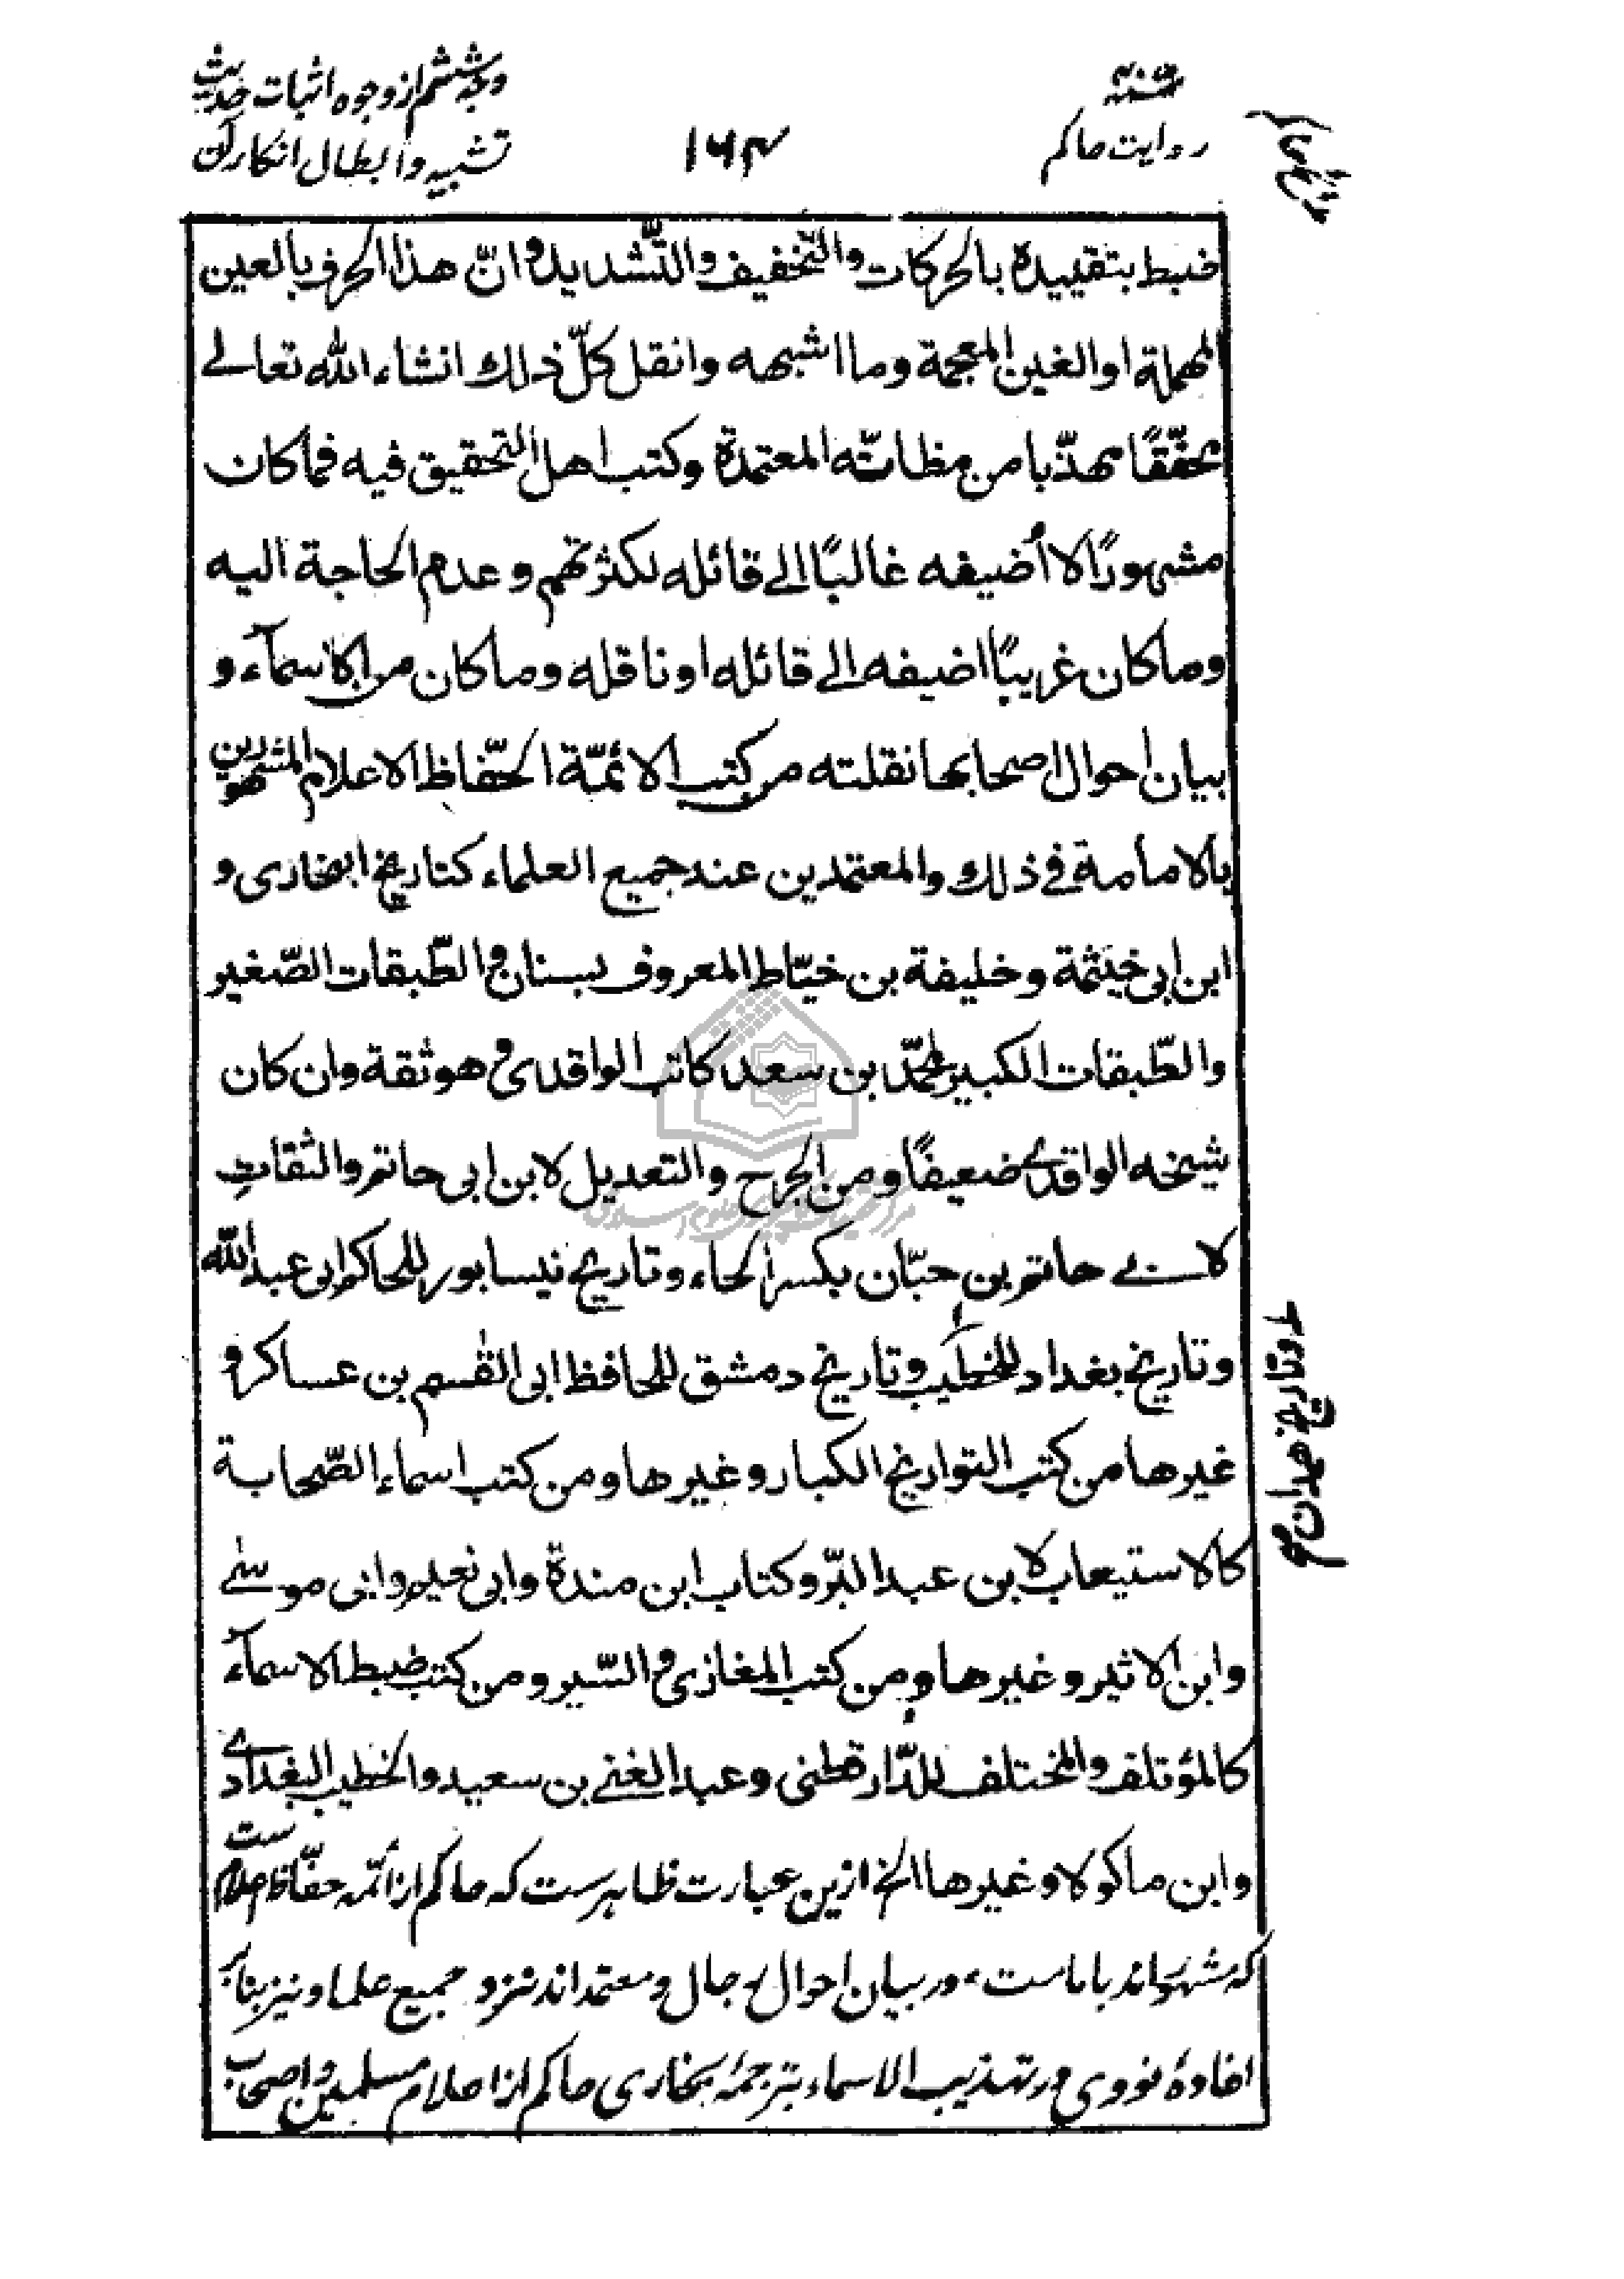 تتمّه
روایت حاکم
۱۶۴
وجه ششم از وجوه اثبات حدیث
تشبیه و ابطال انکار آن
ضبط بتقييده بالحركات والتّخفيف والتّشديد وانّ هذا الحرف بالعين
المهملة او الغين المعجمة وما اشبهه وانقل كلّ ذلك انشاء الله تعالى
محقّقًا مهذّبا من مظانّه المعتمدة وكتب اهل التحقيق فيه فما كان
مشهورًا لا أُضيفه غالبًا الى قائله لكثرتهم وعدم الحاجة اليه
وما كان غريبًا اضيفه الى قائله او ناقله وما كان من الاسمآء و
بيان احوال اصحابها نقلته من كتب الائمّة الحفّاظ الاعلام المشهورين
بالامامة في ذلك والمعتمدين عند جميع العلماء كتاريخ البخارى و
ابن ابى خيثمة وخليفة بن خيّاط المعروف بسنان والطّبقات الصّغير
والطّبقات الكبير لمحمّد بن سعد كاتب الواقدى وهو ثقة وان كان
شيخه الواقدى ضعيفًا ومن الجرح والتعديل لابن ابى حاتم والثقات
لابى حاتم بن حبّان بكسر الحاء وتاريخ نيسابور للحاكم ابى عبد الله
وتاريخ بغداد للخطيب وتاريخ دمشق للحافظ ابى القٰسم بن عساكر و
غيرها من كتب التواريخ الكبار وغيرها ومن كتب اسماء الصّحابة
كالاستيعاب لابن عبد البّر وكتاب ابن مندة وابى نعيم وابى موسى
وابن الاثير وغيرها ومن كتب المغازى والسّير ومن كتب ضبط الاسمآء
كالمؤتلف والمختلف للدّارقطنى وعبد الغنى بن سعيد والخطيب البغدادى
وابن ماكولا وغيرها الخ ازین عبارت ظاهرست که حاکم از ائمّه حفّاظ اعلام ست
که مشهوراند بامامت در بیان احوال رجال و معتمداند نزد جمیع علما و نیز بنابر
افادهٔ نووی در تهذیب الاسماء بترجمهٔ بخاری حاکم از اعلام مسلمین و اصحاب